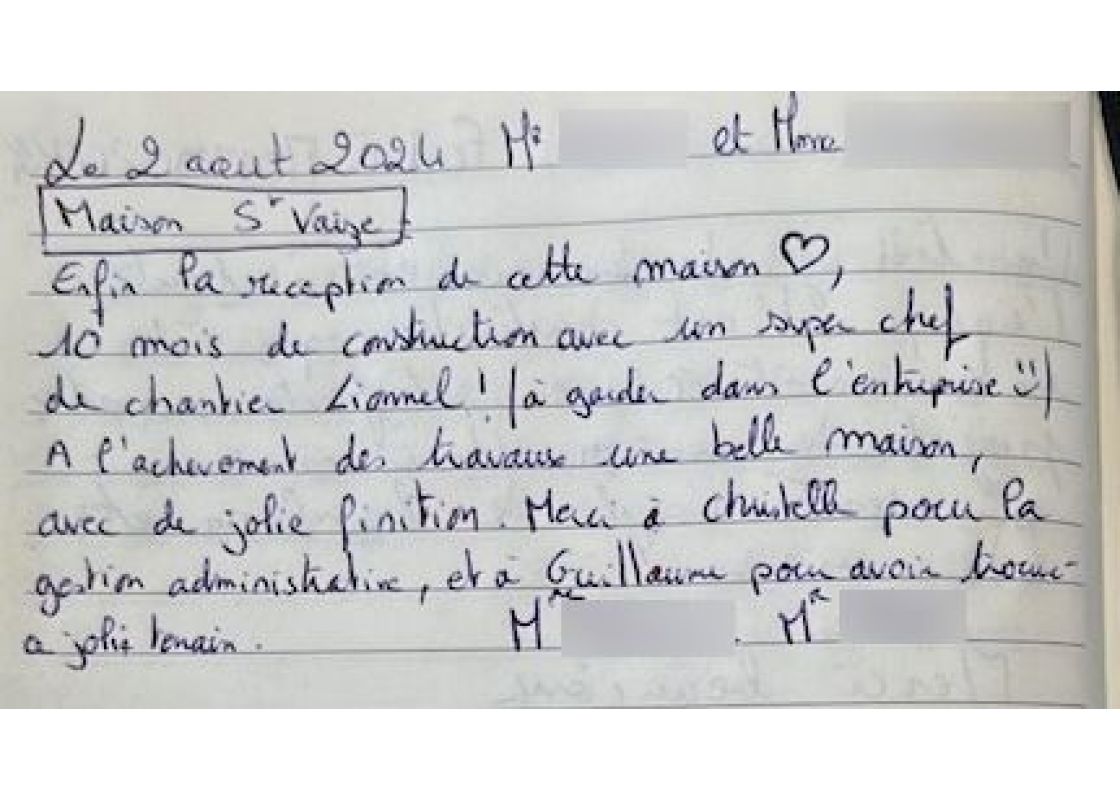 Le 2 aout 2024 Mr et Mme
Maison St Vaize
Enfin la reception de cette maison ♡,
10 mois de construction avec un super chef
de chantier Lionnel ! (à garder dans l'entreprise :))
A l'achevement des travaux une belle maison,
avec de jolie finition. Merci à Christelle pour la
gestion administrative, et à Guillaume pour avoir trouvé
ce joli terrain. Mme . Mr